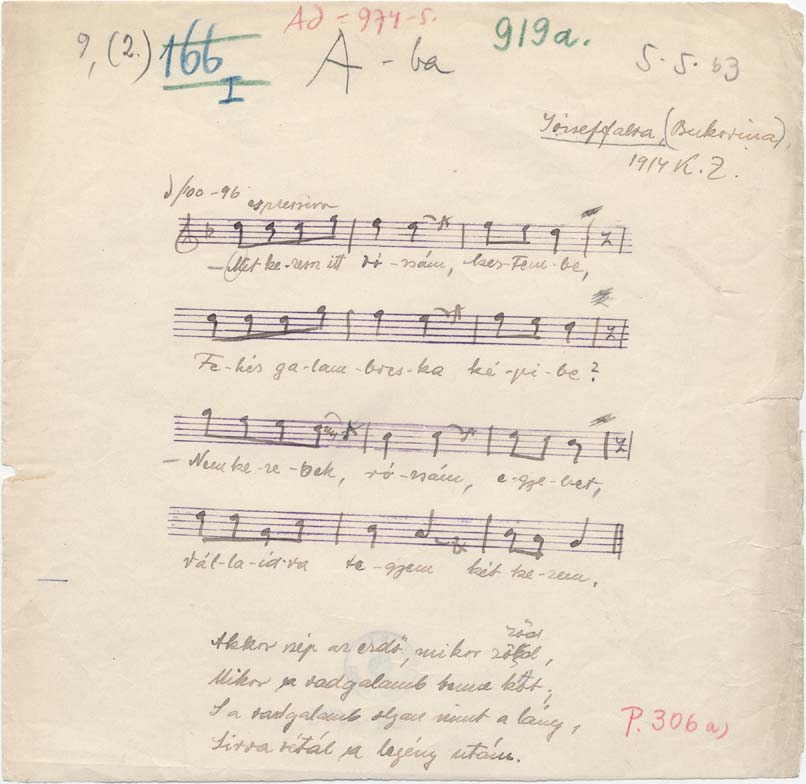 9, (2.) 166 I
Ad = 974-5.
A - ba
919a.
5. 5. 63
Józseffalva, (Bukovina),
1914 K. Z.
100-96 espressivo
– Mit ke-ressz itt ró-zsám, kes-Tem-be,
Fe-hér ga-lam-bocs-ka ké-pi-be?
– Nem ke-re-sek, ró-zsám, e-gye-bet,
Vál-la-id-ra te-gyem két ke-zem.
zöd
Akkor szép az erdő, mikor zöld,
Mikor a vadgalamb benne költ,
S a vadgalamb olyan mint a lány,
Sirva sétál a legény után.
P. 306 a)